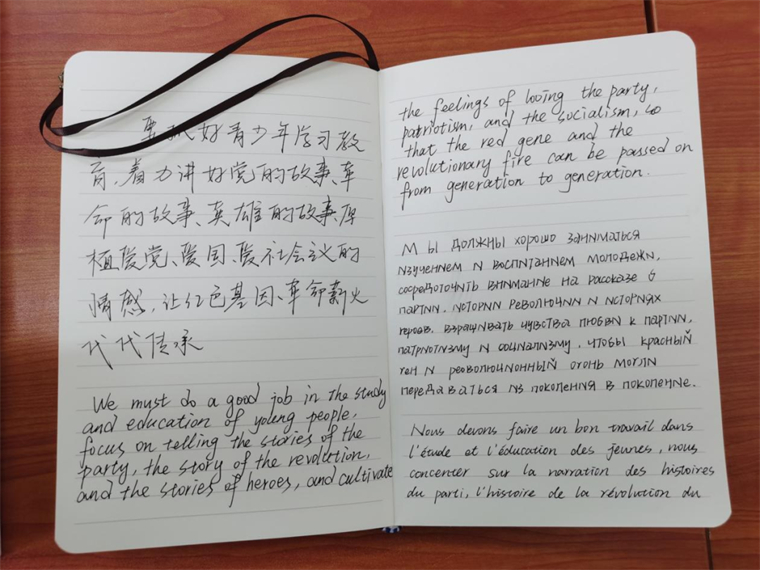 要抓好青少年学习教
育，着力讲好党的故事、革
命的故事、英雄的故事，厚
植爱党、爱国、爱社会主义的
情感，让红色基因、革命薪火
代代传承
We must do a good job in the study
and education of young people,
focus on telling the stories of the
party, the story of the revolution,
and the stories of heroes, and cultivate
the feelings of loving the party,
patriotism, and the socialism, so
that the red gene and the
revolutionary fire can be passed on
from generation to generation.
Мы должны хорошо заниматься
изучением и воспитанием молодежи,
сосредоточить внимание на рассказе о
партии, истории революции и историях
героев. взращивать чувства любви к партии,
патриотизму и социализму, чтобы красный
ген и революционный огонь могли
передаваться из поколения в поколение.
Nous devons faire un bon travail dans
l'étude et l'éducation des jeunes, nous
concenter sur la narration des histoires
du parti, l'histoire de la révolution du